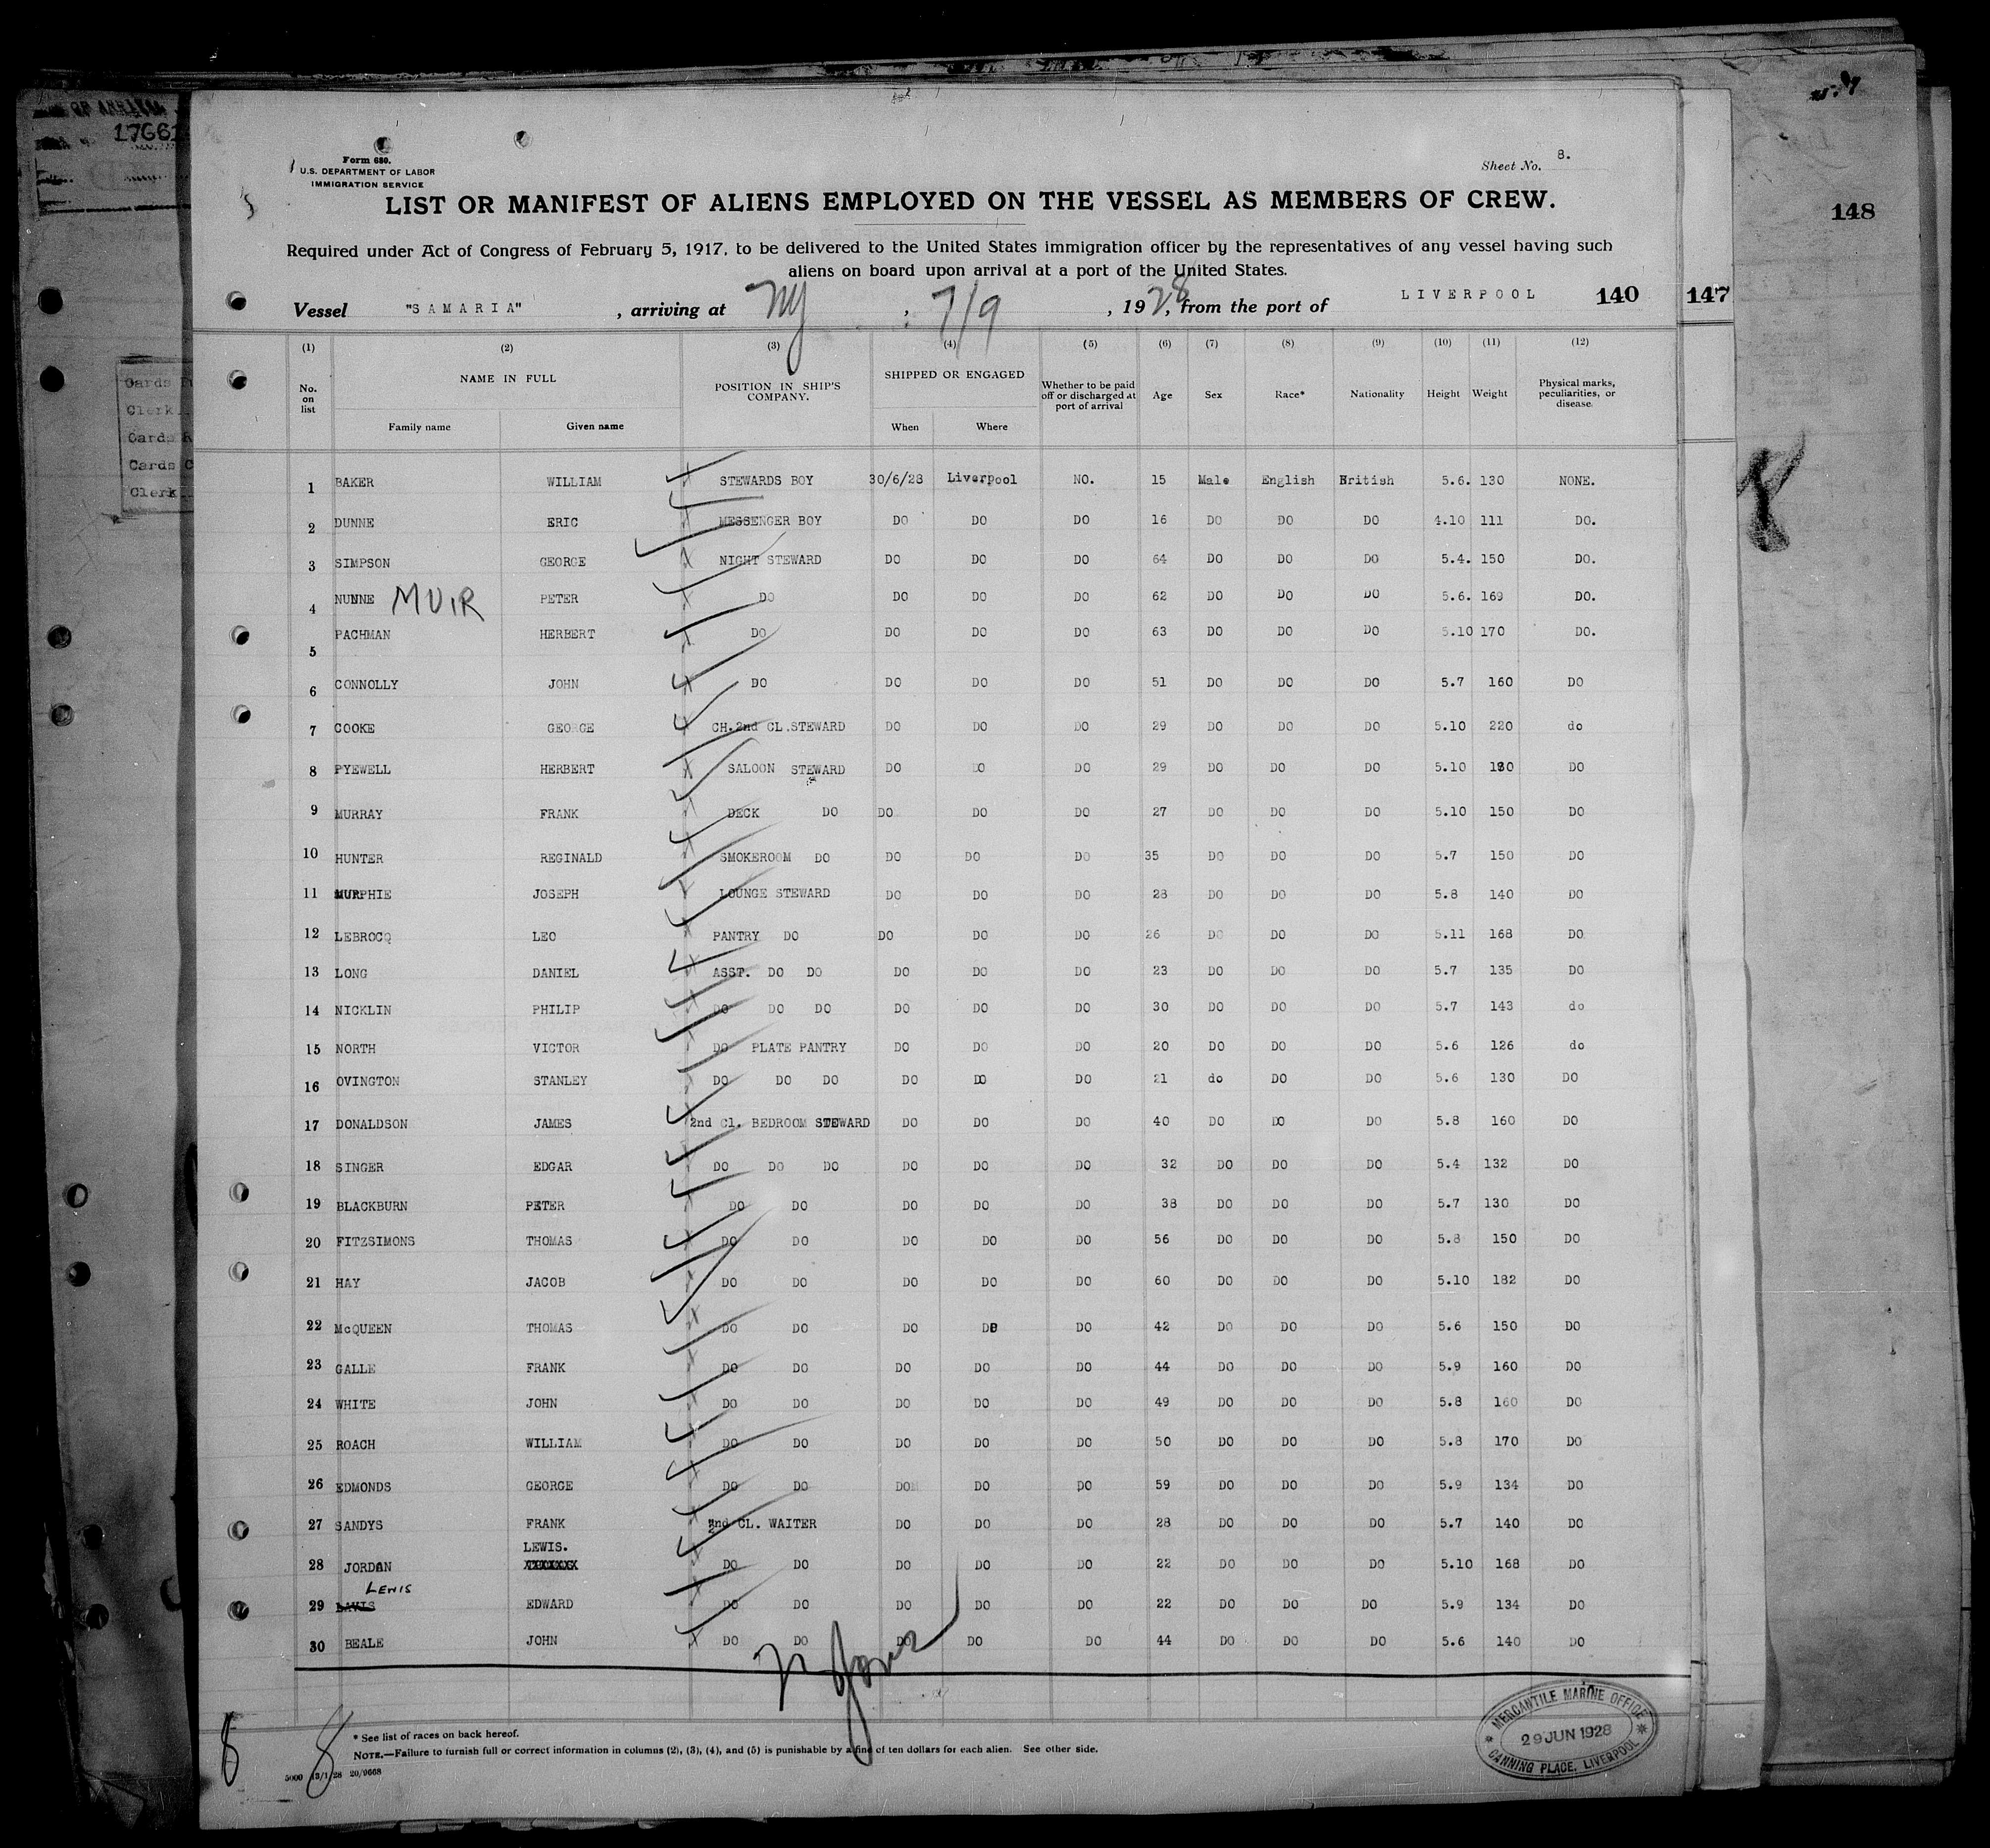 17661
148
Form 680.
U.S. DEPARTMENT OF LABOR
IMMIGRATION SERVICE
Sheet No. 8.
LIST OR MANIFEST OF ALIENS EMPLOYED ON THE VESSEL AS MEMBERS OF CREW.
Required under Act of Congress of February 5, 1917, to be delivered to the United States immigration officer by the representatives of any vessel having such
aliens on board upon arrival at a port of the United States.
Vessel "SAMARIA", arriving at NY, 7/9, 1928, from the port of LIVERPOOL 140 147
(1) (2) (3) (4) (5) (6) (7) (8) (9) (10) (11) (12)
No. on list NAME IN FULL Family name Given name POSITION IN SHIP'S COMPANY. SHIPPED OR ENGAGED When Where Whether to be paid off or discharged at port of arrival Age Sex Race* Nationality Height Weight Physical marks, peculiarities, or disease.
1 BAKER WILLIAM STEWARDS BOY 30/6/28 Liverpool NO. 15 Male English British 5.6. 130 NONE.
2 DUNNE ERIC MESSENGER BOY DO DO DO 16 DO DO DO 4.10 111 DO.
3 SIMPSON GEORGE NIGHT STEWARD DO DO DO 64 DO DO DO 5.4. 150 DO.
4 NUNNE MUIR PETER DO DO DO DO 62 DO DO DO 5.6. 169 DO.
5 PACHMAN HERBERT DO DO DO DO 63 DO DO DO 5.10 170 DO.
6 CONNOLLY JOHN DO DO DO DO 51 DO DO DO 5.7 160 DO
7 COOKE GEORGE CH.2nd CL.STEWARD DO DO DO 29 DO DO DO 5.10 220 do
8 PYEWELL HERBERT SALOON STEWARD DO DO DO 29 DO DO DO 5.10 180 DO
9 MURRAY FRANK DECK DO DO DO DO 27 DO DO DO 5.10 150 DO
10 HUNTER REGINALD SMOKEROOM DO DO DO DO 35 DO DO DO 5.7 150 DO
11 MURPHIE JOSEPH LOUNGE STEWARD DO DO DO 28 DO DO DO 5.8 140 DO
12 LEBROCQ LEO PANTRY DO DO DO DO 26 DO DO DO 5.11 168 DO
13 LONG DANIEL ASST. DO DO DO DO DO 23 DO DO DO 5.7 135 DO
14 NICKLIN PHILIP DO DO DO DO DO DO 30 DO DO DO 5.7 143 do
15 NORTH VICTOR DO PLATE PANTRY DO DO DO 20 DO DO DO 5.6 126 do
16 OVINGTON STANLEY DO DO DO DO DO DO 21 do DO DO 5.6 130 DO
17 DONALDSON JAMES 2nd Cl. BEDROOM STEWARD DO DO DO 40 DO DO DO 5.8 160 DO
18 SINGER EDGAR DO DO DO DO DO DO 32 DO DO DO 5.4 132 DO
19 BLACKBURN PETER DO DO DO DO DO 38 DO DO DO 5.7 130 DO
20 FITZSIMONS THOMAS DO DO DO DO DO 56 DO DO DO 5.8 150 DO
21 HAY JACOB DO DO DO DO DO 60 DO DO DO 5.10 182 DO
22 McQUEEN THOMAS DO DO DO DO DO 42 DO DO DO 5.6 150 DO
23 GALLE FRANK DO DO DO DO DO 44 DO DO DO 5.9 160 DO
24 WHITE JOHN DO DO DO DO DO 49 DO DO DO 5.8 160 DO
25 ROACH WILLIAM DO DO DO DO DO 50 DO DO DO 5.8 170 DO
26 EDMONDS GEORGE DO DO DO DO DO 59 DO DO DO 5.9 134 DO
27 SANDYS FRANK 2nd CL. WAITER DO DO DO 28 DO DO DO 5.7 140 DO
LEWIS.
28 JORDAN DO DO DO DO DO 22 DO DO DO 5.10 168 DO
LEWIS
29 DAVIS EDWARD DO DO DO DO DO 22 DO DO DO 5.9 134 DO
30 BEALE JOHN DO DO DO DO DO 44 DO DO DO 5.6 140 DO
* See list of races on back hereof.
NOTE.—Failure to furnish full or correct information in columns (2), (3), (4), and (5) is punishable by a fine of ten dollars for each alien. See other side.
5000 13/1/28 20/9668
8 8
MERCANTILE MARINE OFFICE
29 JUN 1928
CANNING PLACE, LIVERPOOL